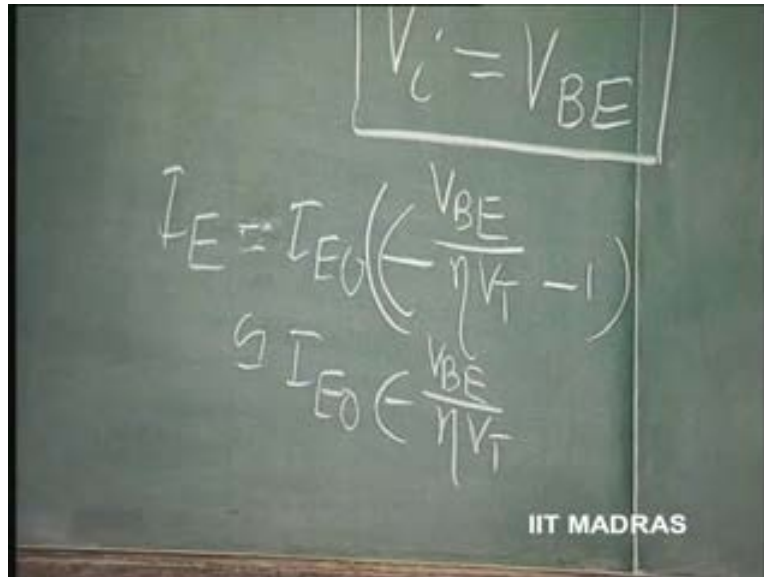 Vi = VBE
IE = IE0 (ϵ VBE/ηVT - 1)
≈ IE0 ϵ VBE/ηVT
IIT MADRAS